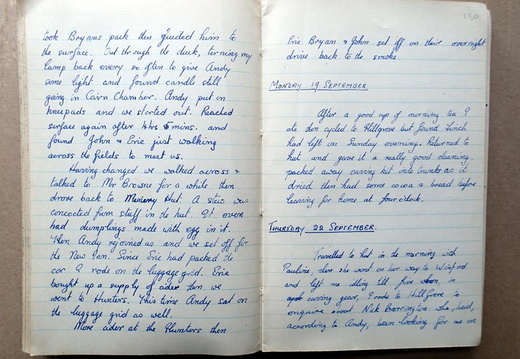 took Bryans pack then guided him to
the surface. Cut through the duck, turning my
lamp back every so often to give Andy
some light and found candle still
going in Cairn Chamber. Andy put on
kneepads and we started out. Reached
surface again after 4hrs 5 mins. and
found John & Eric just walking
across the fields to meet us.
Having changed we walked across &
talked to Mr Browne for a while then
drove back to Hut. A stew was
concocted from stuff in the hut. It even
had dumplings made with egg in it.
Then Andy rejoined us and we set off for
the New Inn. Since Eric had packed the
car I rode on the luggage grid. Eric
bought up a supply of cider then we
went to Hunters. This time Andy sat on
the luggage grid as well.
More cider at the Hunters then
130
Eric Bryan & John set off on their overnight
drive back to the smoke
MONDAY 19 SEPTEMBER
After a good cup of morning tea I
ate then cycled to Hillgrove but found
had left on Sunday evening. Returned to
hut and gave it a really good cleaning,
packed away carving kit into trunks as it
dried then had some cocoa & bread before
leaving for home at four o'clock.
THURSDAY 22 SEPTEMBER
Travelled to hut in the morning with
Pauline, then she went on her way to Winford
and left me idling till five when, in
caving gear, I rode to Hillgrove to
enquire about Nick Barrington who, heard,
according to Andy, been looking for me on